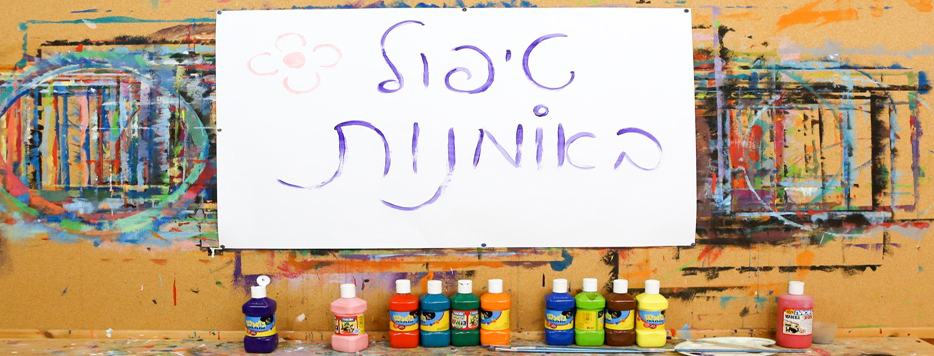 טיפול
באומנות